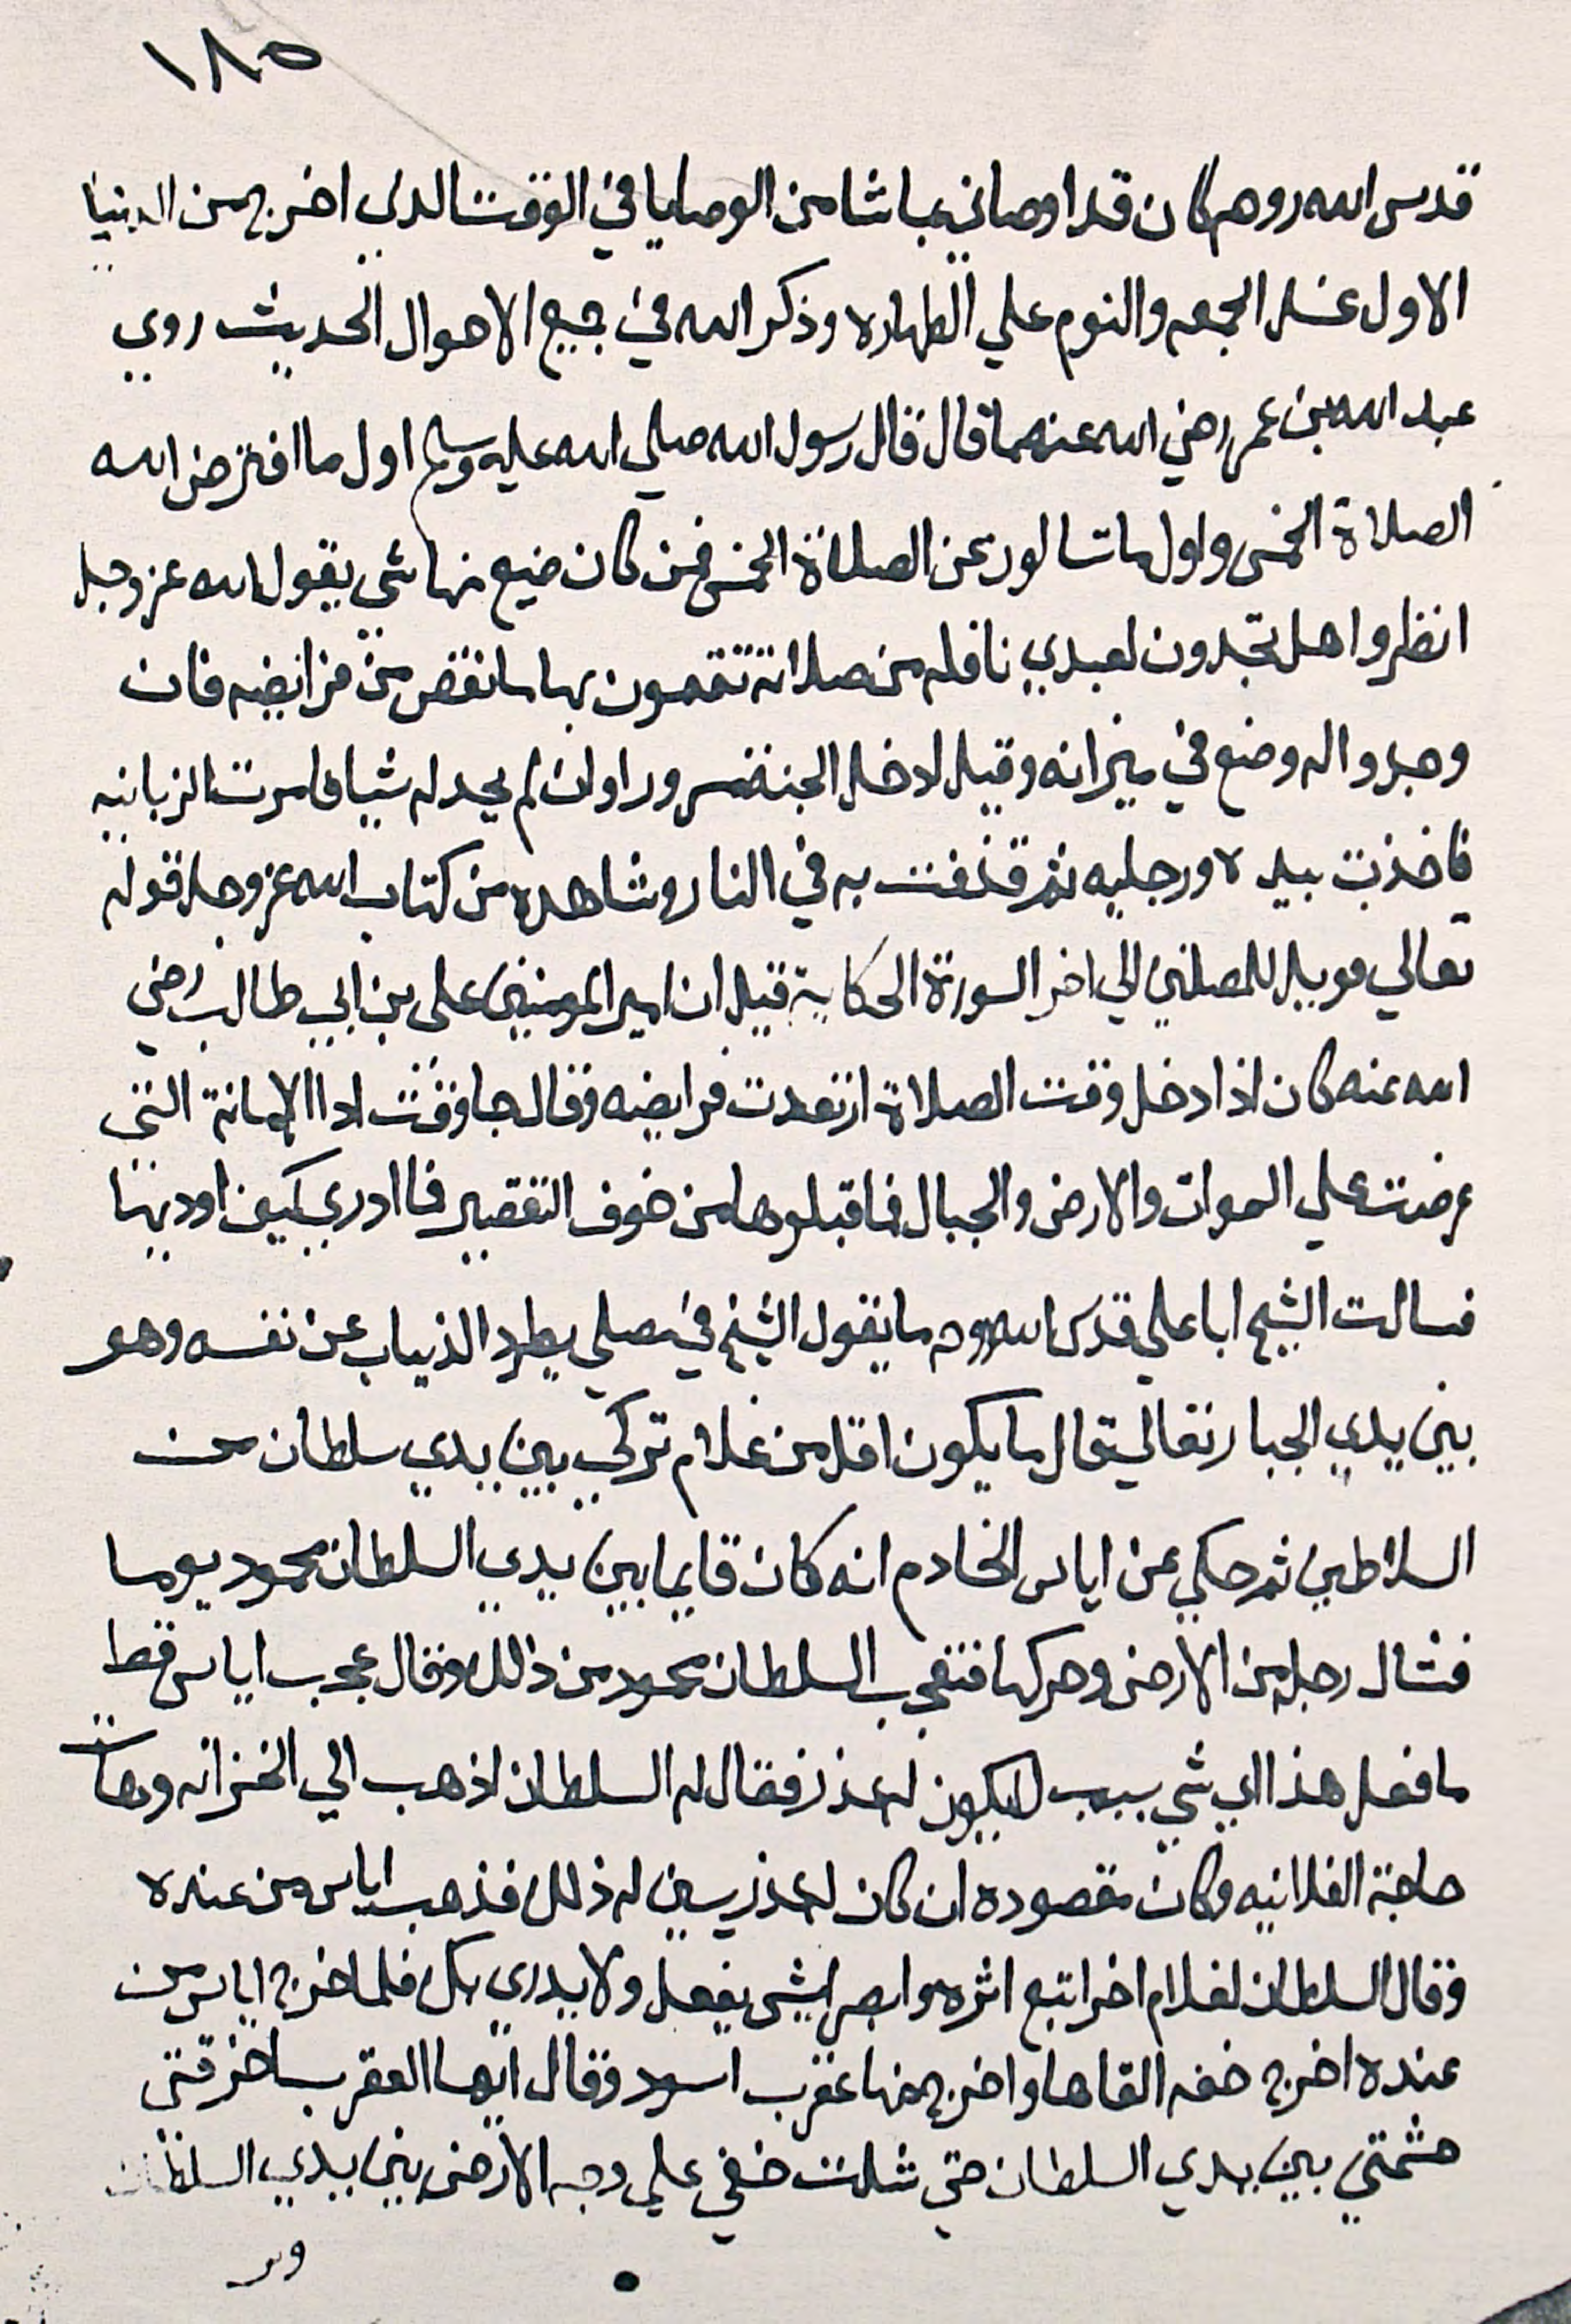 ١٨٥
قدس الله روحه كان قد اوصاني باشيا من الوصايا في الوقت الذي اخرج من الدنيا
الاول غسل الجمعه والنوم علي الطهاره وذكر الله في جميع الاحوال الحديث روي
عبد الله بن عمر رضي الله عنهما قال قال رسول الله صلي الله عليه وسلم اول ما افترض الله
الصلاة الخمس واول ما تسالون عن الصلاة الخمس فمن كان ضيع منها شي يقول الله عز وجل
انظروا هل تجدون لعبدي نافله من صلاته تتمون بها ما نقص من فرايضه فان
وجدوا له وضع في ميزانه وقيل ادخل الجنة مسرورا وان لم يجد له شيا فامرت الزبانيه
فاخذت بيده ورجليه ثم قذفت به في النار وشاهده من كتاب الله عز وجل قوله
تعالي فويل للمصلين الي اخر السورة الحكاية قيل ان امير المومنين علي بن ابي طالب رضي
الله عنه كان اذا دخل وقت الصلاة ارتعدت فرايضه وقال جا وقت ادا الامانة التي
عرضت علي السموات والارض والجبال فما قبلوها من خوف التقصير فما ادري كيف اوديها
فسالت الشيخ ابا علي قدس الله روحه ما يقول الشيخ في مصلي يطرد الذباب عن نفسه وهو
بين يدي الجبار تعالي قال ما يكون اقل من غلام تركي بين يدي سلطان من
السلاطين ثم حكي عن اياس الخادم انه كان قايما بين يدي السلطان محمود يوما
فشال رجله من الارض وحركها فتعجب السلطان محمود من ذالك وقال عجب اياس قط
ما فعل هذا اي شي سبب ليكون له عذر فقال له السلطان اذهب الي الخزانه وهات
حاجة الفلانيه وكان مقصوده ان كان له عذر يبين له ذلك فذهب اياس من عنده
وقال السلطان لغلام اخر اتبع اثره وابصر ايش يفعل ولا يدري بك فلما خرج اياس من
عنده اخرج خفه القاها واخرج منها عقرب اسود وقال ايها العقرب اخرقتي
حشمتي بين يدي السلطان حتي شلت خفي علي وجه الارض بين يدي السلطان